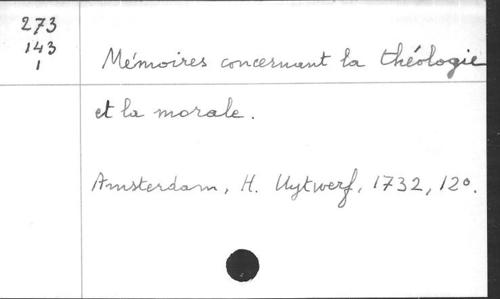 273
143
1
Mémoires concernant la théologie
et la morale.
Amsterdam, H. Uytwerf, 1732, 12°.